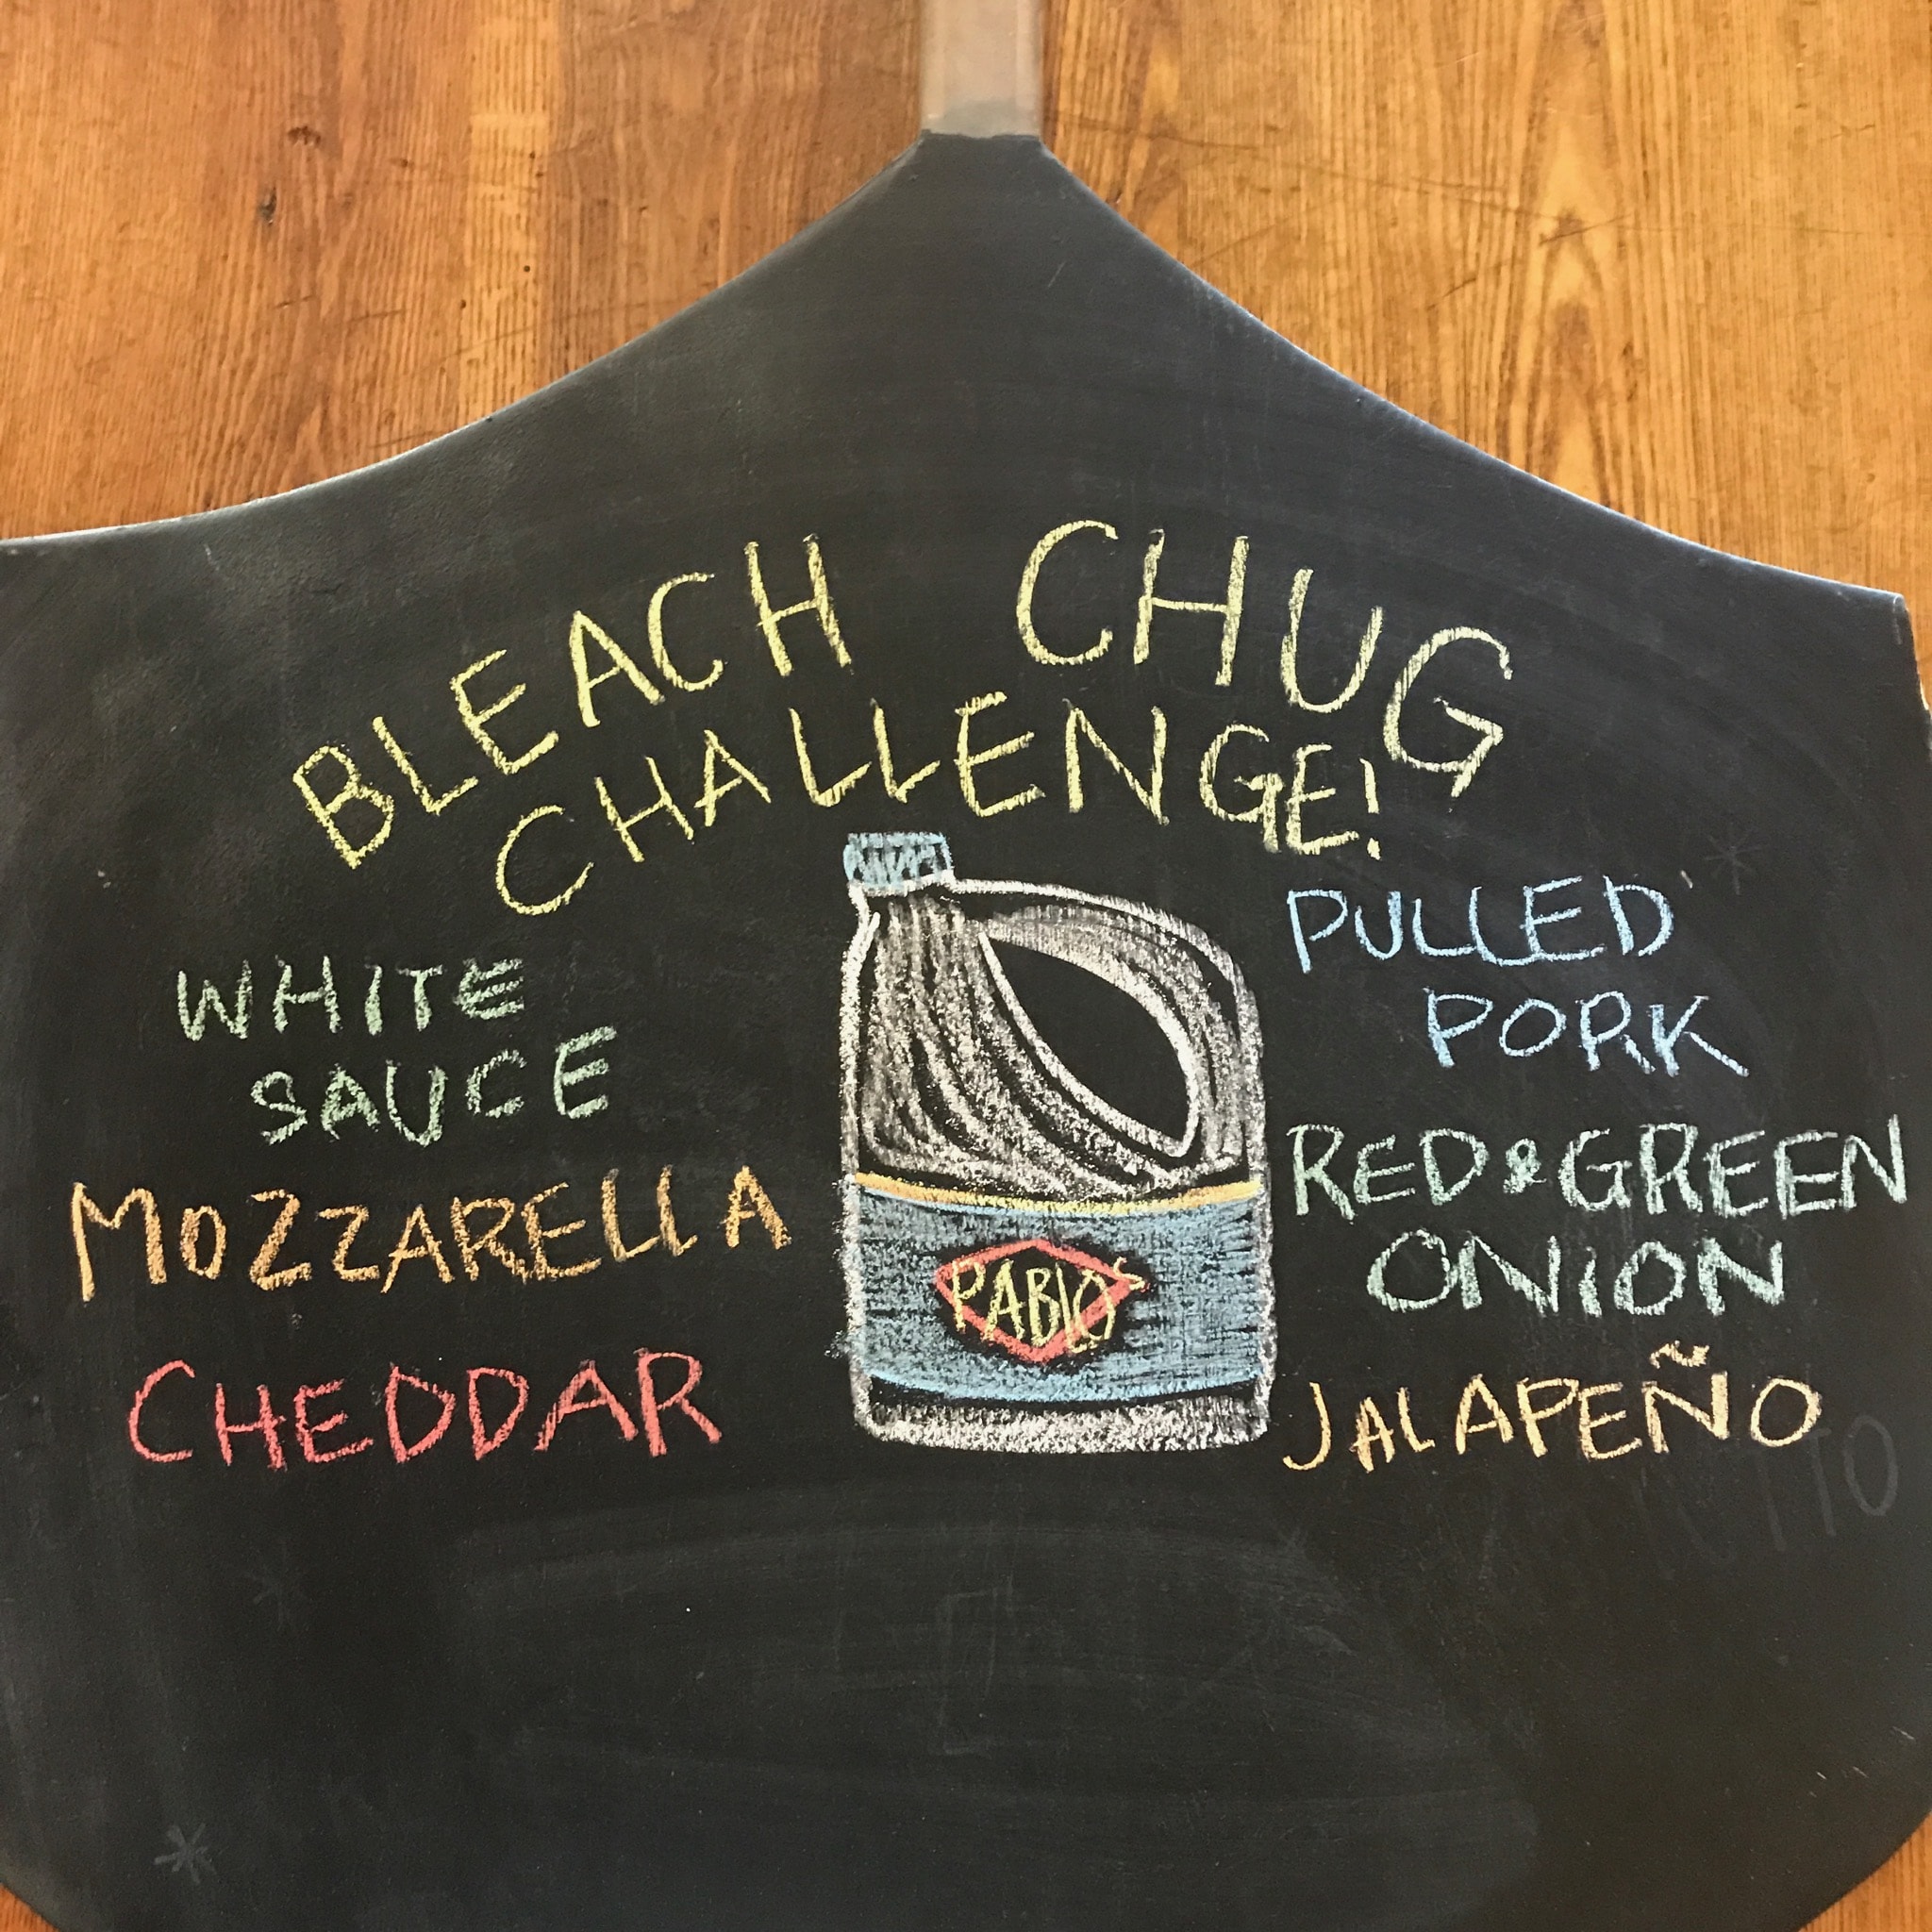 BLEACH CHUG
CHALLENGE!
WHITE
SAUCE
MOZZARELLA
CHEDDAR
PABLO'S
PULLED
PORK
RED & GREEN
ONION
JALAPEÑO